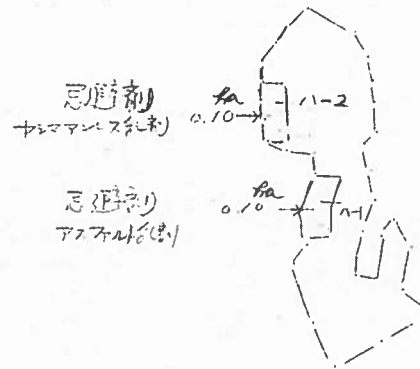 忌避剤
ヤシマアンレス乳剤
ha
0.10
ハ-2
忌避剤
アスファルト乳剤
ha
0.10
ハ-1